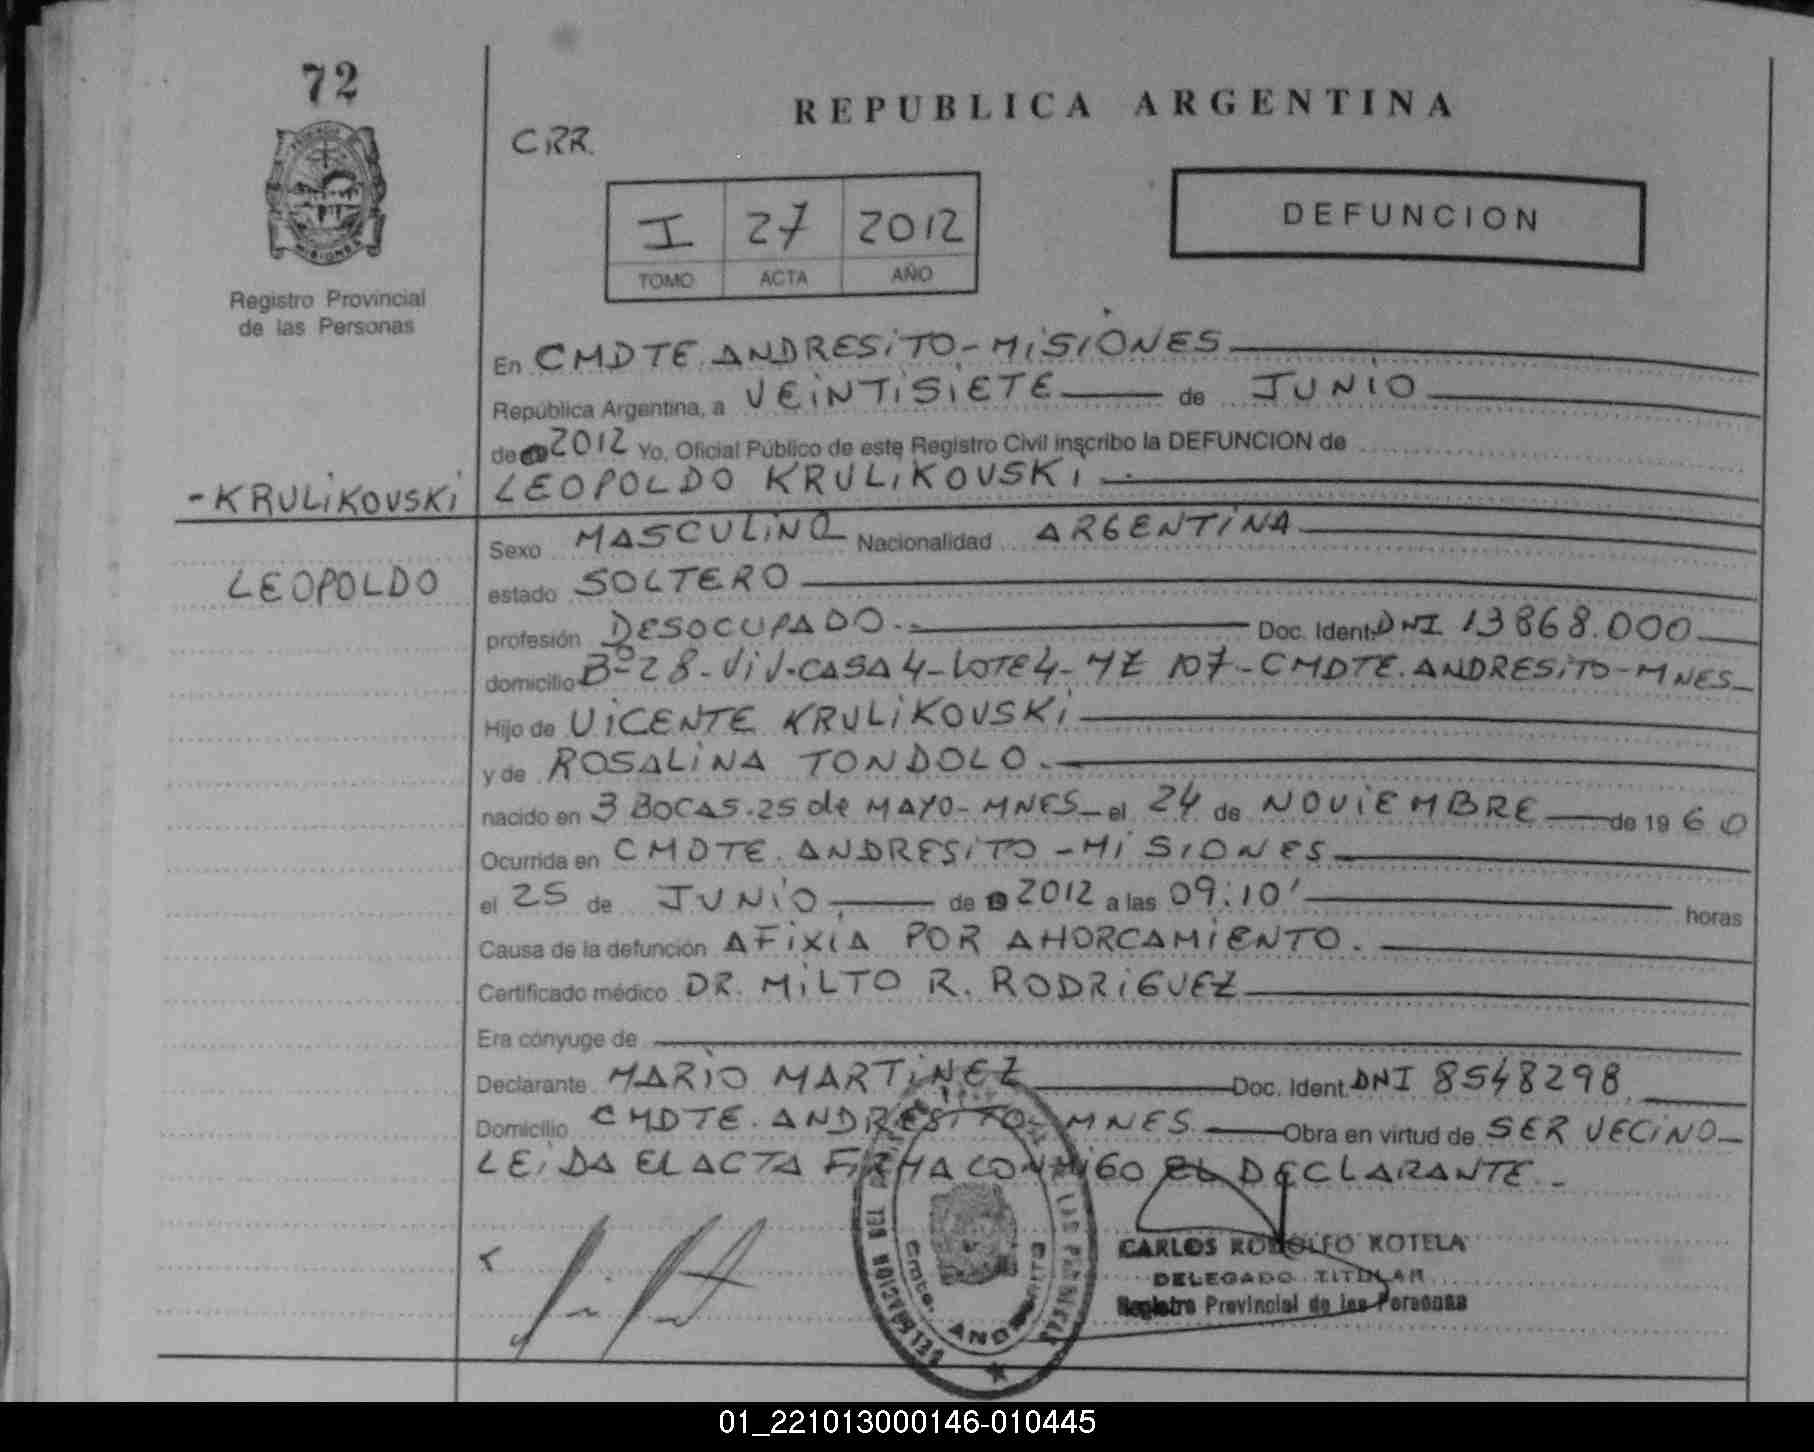 72
REPUBLICA ARGENTINA
CRR.
I 27 2012
TOMO ACTA AÑO
DEFUNCION
Registro Provincial
de las Personas
En CMDTE. ANDRESiTO-MiSiONES
República Argentina, a VEiNTiSiETE de JUNiO
de 2012 Yo, Oficial Público de este Registro Civil inscribo la DEFUNCION de
-KRULiKOVSKi
LEOPOLDO KRULiKOVSKi
Sexo MASCULiNO Nacionalidad ARGENTiNA
LEOPOLDO
estado SOLTERO
profesión DESOCUPADO.- Doc. Ident. DNI 13868.000
domicilio Bº 28-ViV-CASA 4-LOTE 4-MZ 107-CMDTE.ANDRESiTO-MNES
Hijo de ViCENTE KRULiKOVSKi
y de ROSALiNA TONDOLO.
nacido en 3 BOCAS.25 de MAYO-MNES el 24 de NOViEMBRE de 1960
Ocurrida en CMDTE. ANDRESiTO-MiSiONES
el 25 de JUNiO de 2012 a las 09:10' horas
Causa de la defunción AFiXiA POR AHORCAMiENTO.
Certificado médico DR. MiLTO R. RODRiGUEZ
Era cónyuge de
Declarante MARiO MARTiNEZ Doc. Ident. DNI 8548298
Domicilio CMDTE. ANDRESiTO-MNES Obra en virtud de SER VECiNO
LEiDA EL ACTA FiRMA CONMiGO EL DECLARANTE.
DELEGACION DEL LAS PERSONAS
Cmdte. ANDRESITO
CARLOS RODOLFO ROTELA
DELEGADO TITULAR
Registro Provincial de las Personas
01_221013000146-010445